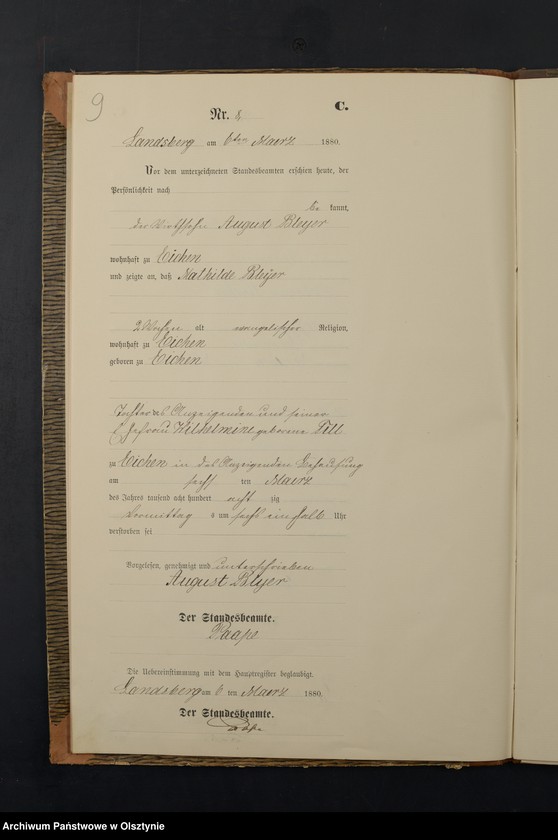 9
C.
Nr. 8
Landsberg am 6ten Maerz 1880.
Vor dem unterzeichneten Standesbeamten erschien heute, der
Persönlichkeit nach
be kannt,
der August Bleyer
wohnhaft zu Eichen
und zeigte an, daß Mathilde Bleyer
2 Wochen alt evangelischer Religion,
wohnhaft zu Eichen
geboren zu Eichen
Tochter des Anzeigenden und seiner
Ehefrau Wilhelmine geborene Till
zu Eichen in des Anzeigenden Behausung
am sechs ten Maerz
des Jahres tausend acht hundert acht zig
Vormittag s um sechs einhalb Uhr
verstorben sei
Vorgelesen, genehmigt und unterschrieben
August Bleyer
Der Standesbeamte.
Paape
Die Uebereinstimmung mit dem Hauptregister beglaubigt.
Landsberg am 6 ten Maerz 1880.
Der Standesbeamte.
Archiwum Państwowe w Olsztynie